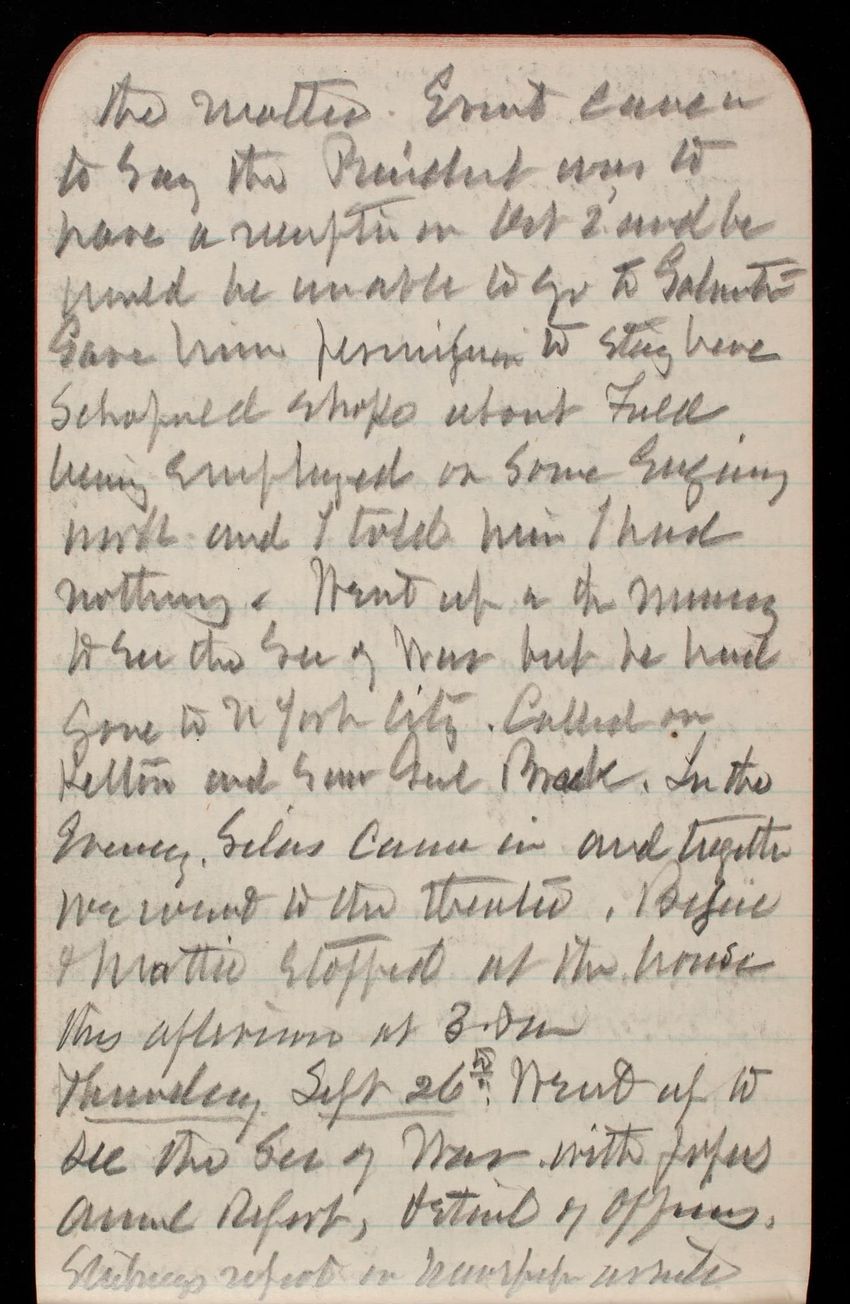 the matter. Ernst came in
to say the President was to
have a reception Oct 2' and he
would be unable to go to
Gave him permission to stay here
Schofield spoke about Field
being employed on some Engineering
work and I told him I had
nothing. Went up
to see the Sec of War but he had
gone to N York City. Called on
Kelton and saw Genl Breck. In the
Evening. Silas came in and together
we went to the theatre. Bessie
& Mattie stopped at the house
this afternoon at
Thursday Sept 26th. Went up to
see the Sec of War with papers
Annual Report, detail of Officers.
report on newspaper article